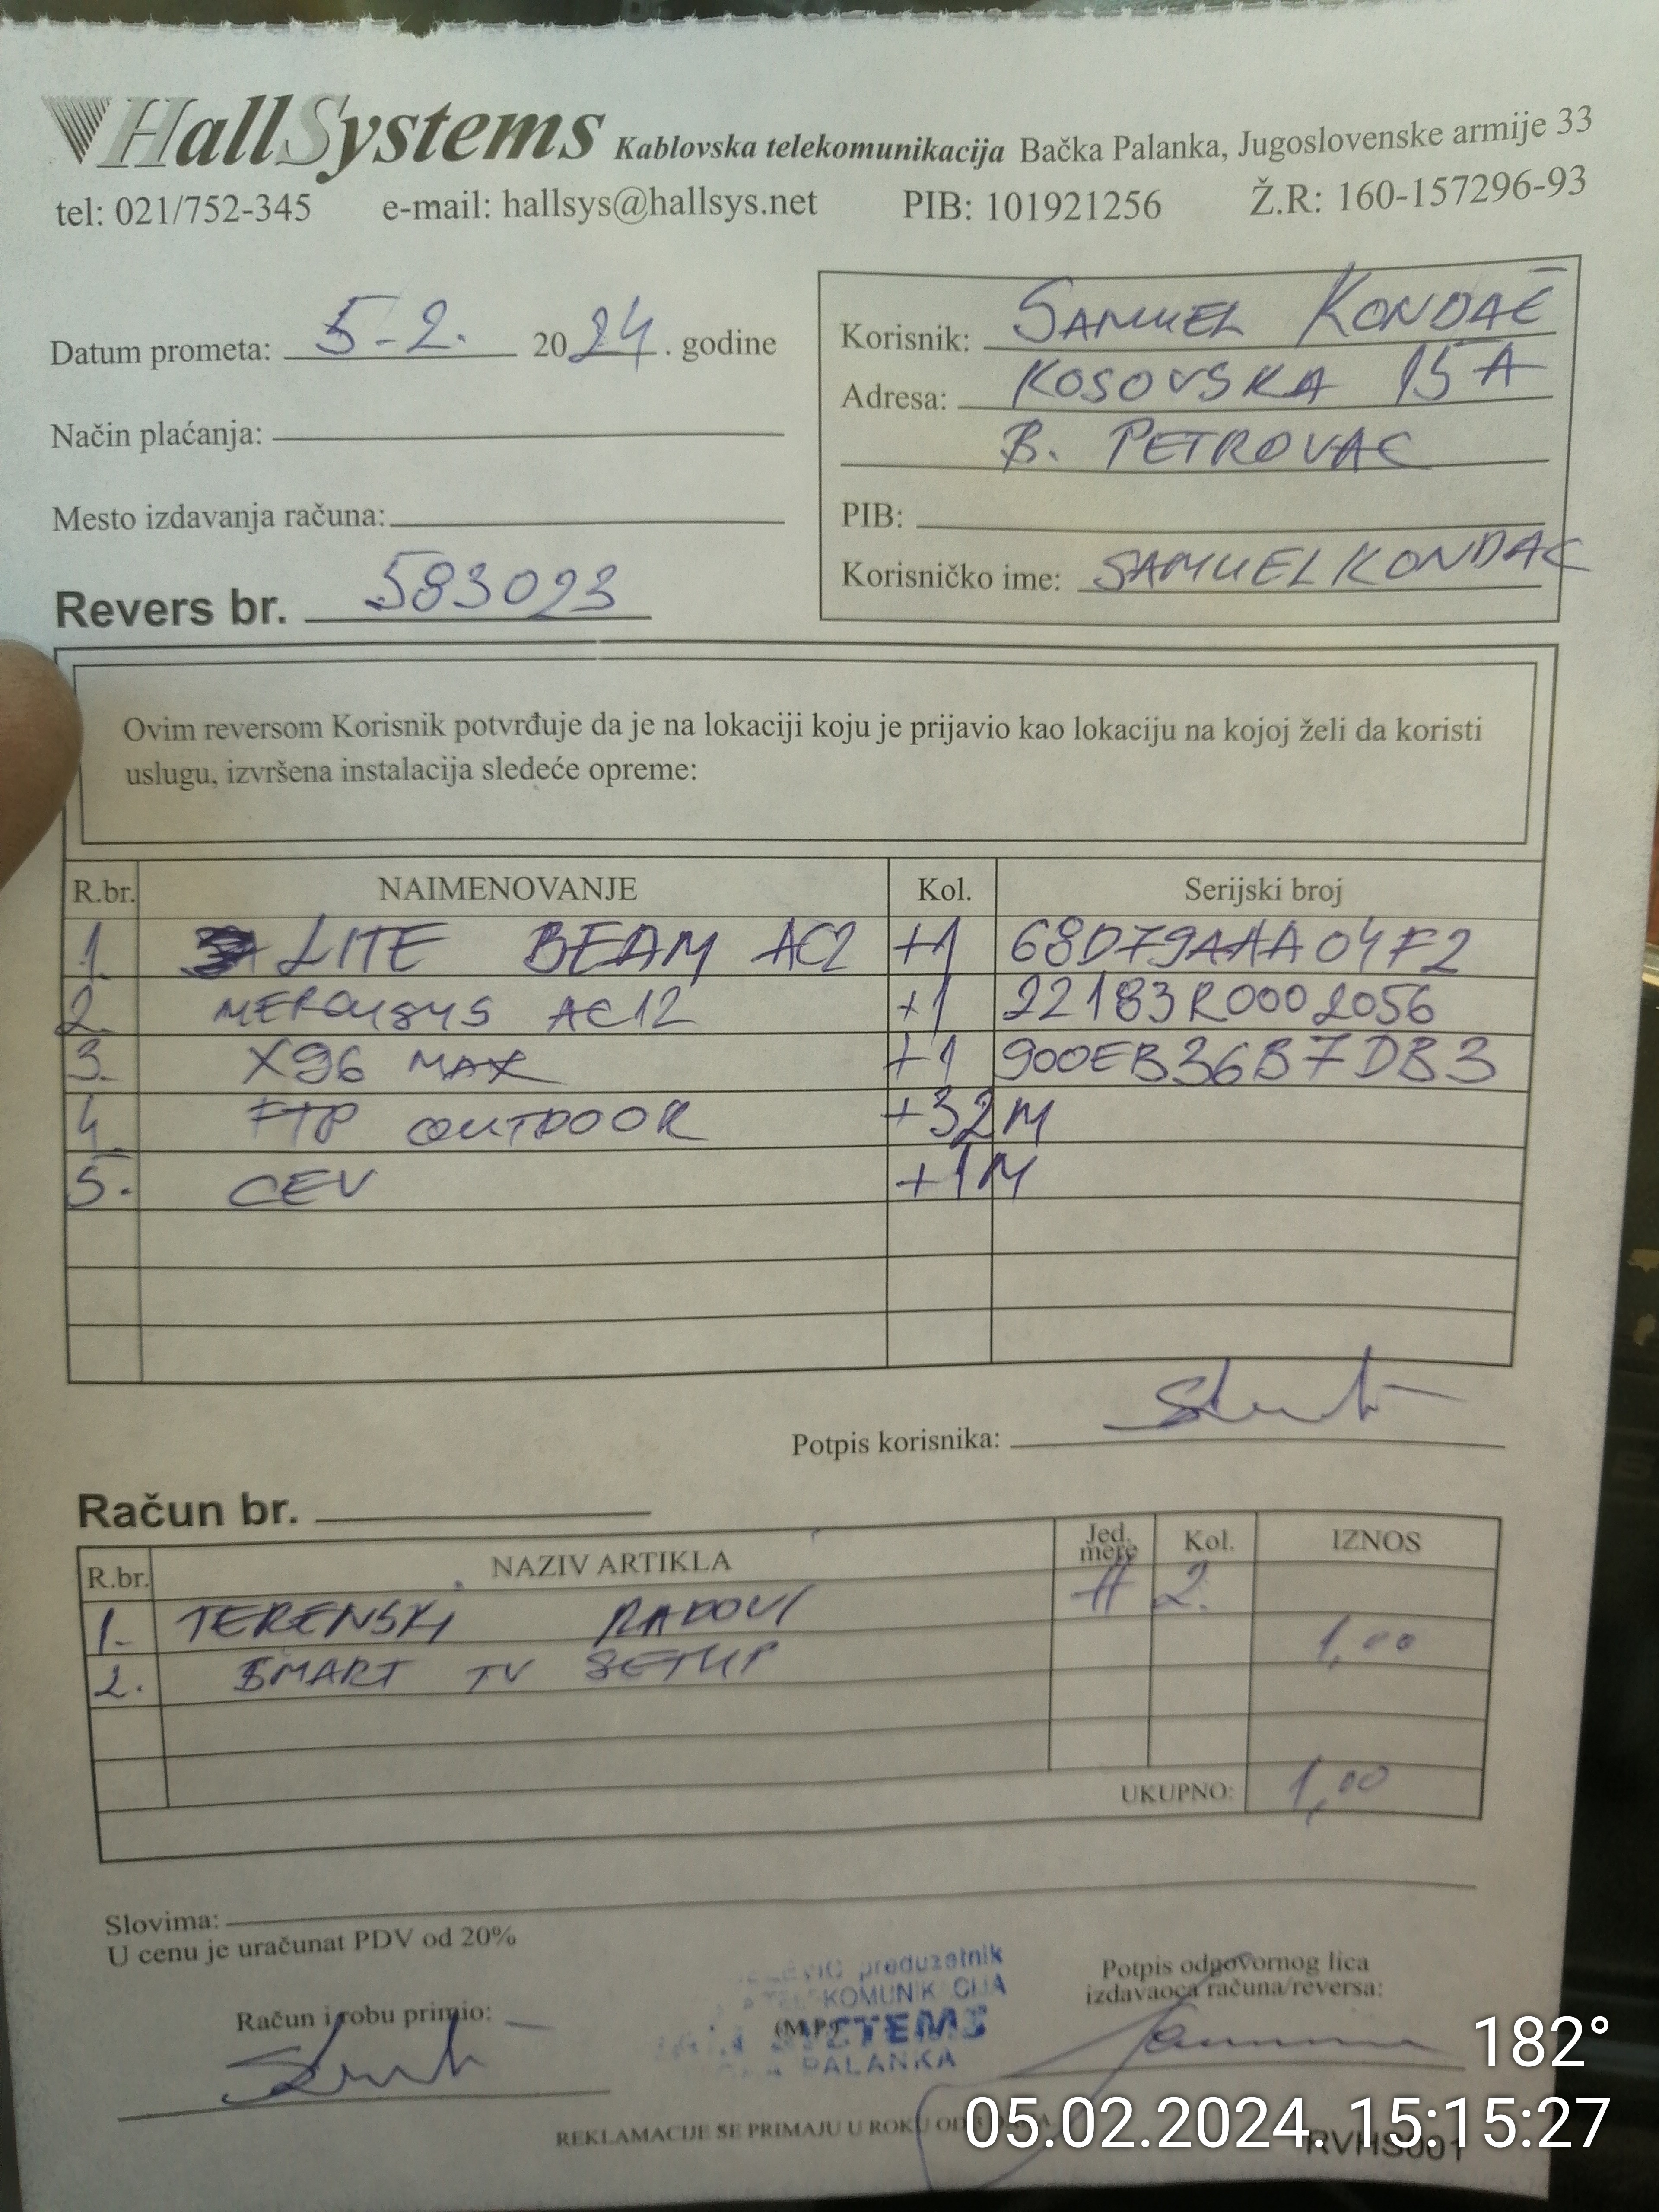 HallSystems Kablovska telekomunikacija Bačka Palanka, Jugoslovenske armije 33
tel: 021/752-345 e-mail: hallsys@hallsys.net PIB: 101921256 Ž.R: 160-157296-93
Datum prometa: 5-2. 2024. godine
Način plaćanja:
Mesto izdavanja računa:
Revers br. 583023
Korisnik: SAMUEL KONDAČ
Adresa: KOSOVSKA 15A
B. PETROVAC
PIB:
Korisničko ime: SAMUELKONDAC
Ovim reversom Korisnik potvrđuje da je na lokaciji koju je prijavio kao lokaciju na kojoj želi da koristi
uslugu, izvršena instalacija sledeće opreme:
R.br. NAIMENOVANJE Kol. Serijski broj
1. LITE BEAM AC2 +1 68D79AAA04F2
2. MERCUSYS AC12 +1 22183R0002056
3. X96 MAX +1 900EB36B7DB3
4. FTP OUTDOOR +32M
5. CEV +1M
Potpis korisnika:
Račun br.
R.br. NAZIV ARTIKLA Jed. mere Kol. IZNOS
1. TERENSKI RADOVI H 2.
2. SMART TV SETUP 1,00
UKUPNO: 1,00
Slovima:
U cenu je uračunat PDV od 20%
Račun i robu primio:
preduzetnik
KOMUNIKACIJA
(M.P.)
PALANKA
Potpis odgovornog lica
izdavaoca računa/reversa:
REKLAMACIJE SE PRIMAJU U ROKU OD
RVHS001
182°
05.02.2024. 15:15:27